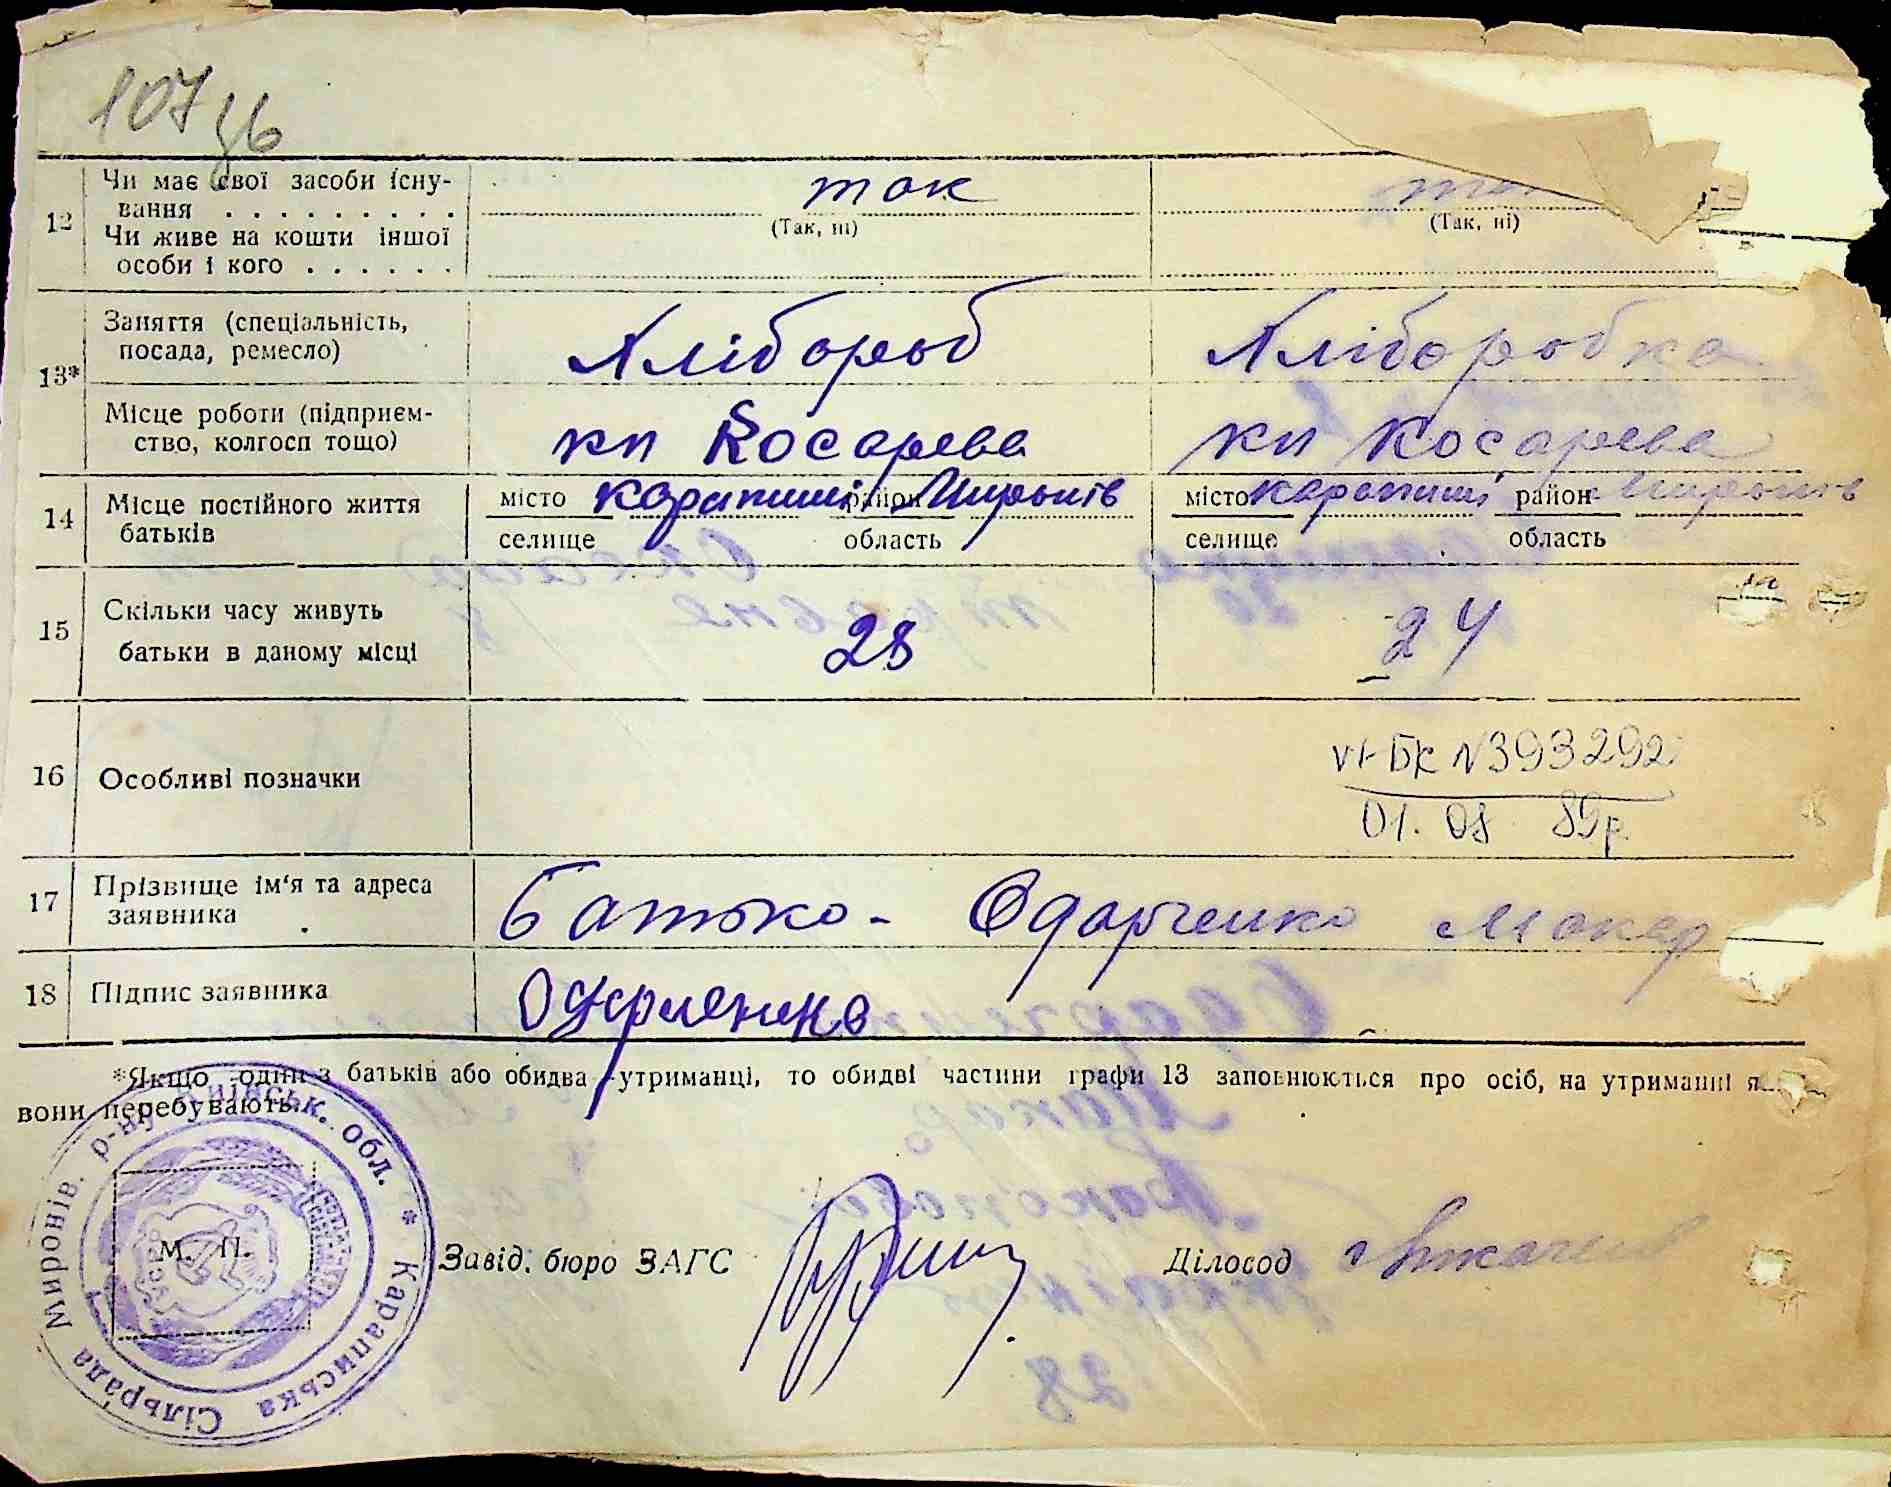 107 зв
12
Чи має свої засоби існу-
вання . . . . . . . . .
так
(Так, ні)
(Так, ні)
Чи живе на кошти іншої
особи і кого . . . . . .
13*
Заняття (спеціальність,
посада, ремесло)
Хлібороб
Хліборобка
Місце роботи (підприєм-
ство, колгосп тощо)
кп Косарева
кп Косарева
14
Місце постійного життя
батьків
місто Карапиші район Миронів
селище область
місто Карапиші район Миронів
селище область
15
Скільки часу живуть
батьки в даному місці
28
24
16
Особливі позначки
VI-БК N393292
01. 08 89р.
17
Прізвище ім'я та адреса
заявника
батько - Одарченко Макар
18
Підпис заявника
*Якщо один з батьків або обидва утриманці, то обидві частини графи 13 заповнюються про осіб, на утриманні
вони перебувають.
Миронів. р-ну Київськ. обл. * Караписька Сільрада
М. П.
Завід. бюро ЗАГС
Діловод